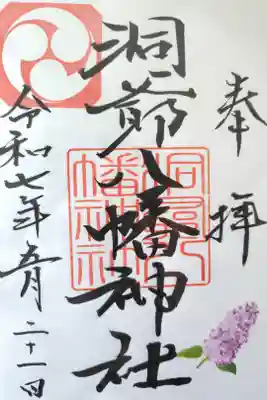 奉拝
洞爺八幡神社
洞爺八
幡神社
令和七年五月二十一日